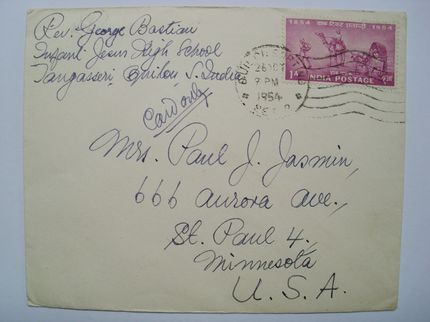 Rev. George Bastian
Infant Jesus High School
Tangasseri, Quilon S. India
Card only
1854 1954
1A INDIA POSTAGE
7 PM
1954
Mrs. Paul J. Jasmin,
666 Aurora Ave.,
St. Paul 4,
Minnesota
U. S. A.